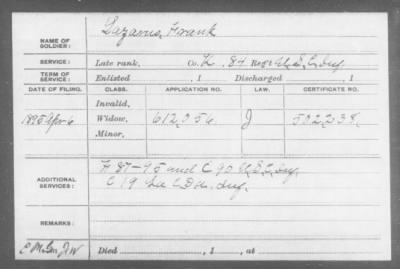 NAME OF SOLDIER: Lazarus, Frank
SERVICE: Late rank, Co. K. 84 Reg't U.S.C. Inf.
TERM OF SERVICE: Enlisted , 1 Discharged , 1
DATE OF FILING. CLASS. APPLICATION NO. LAW. CERTIFICATE NO.
Invalid,
1895 Apr 6 Widow, 612,056 J 502,238.
Minor,
ADDITIONAL SERVICES: H 87-95 and C 90 U.S.C. Inf.
C 19 Inf.
REMARKS:
Died , 1 , at